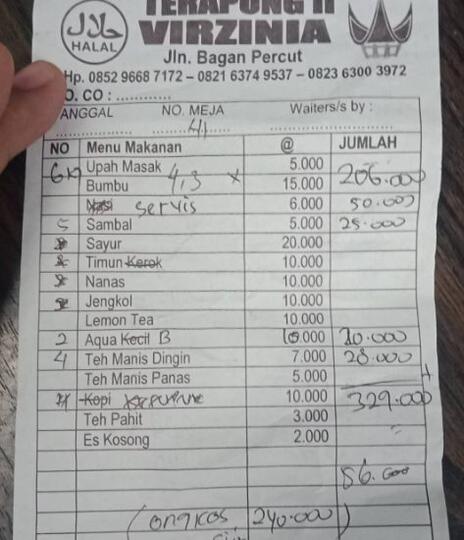 حلال
HALAL
TERAPUNG II
VIRZINIA
Jln. Bagan Percut
Hp. 0852 9668 7172 – 0821 6374 9537 – 0823 6300 3972
O. CO : ............
ANGGAL NO. MEJA Waiters/s by :
41
NO Menu Makanan @ JUMLAH
Upah Masak 5.000
Bumbu 4,3 x 15.000 206.000
servis 6.000 50.000
5 Sambal 5.000 25.000
Sayur 20.000
Timun Kerok 10.000
Nanas 10.000
Jengkol 10.000
Lemon Tea 10.000
2 Aqua Kecil B 10.000 20.000
4 Teh Manis Dingin 7.000 28.000
Teh Manis Panas 5.000
Kopi 10.000 329.000
Teh Pahit 3.000
Es Kosong 2.000
86.000
(ongkos 240.000)